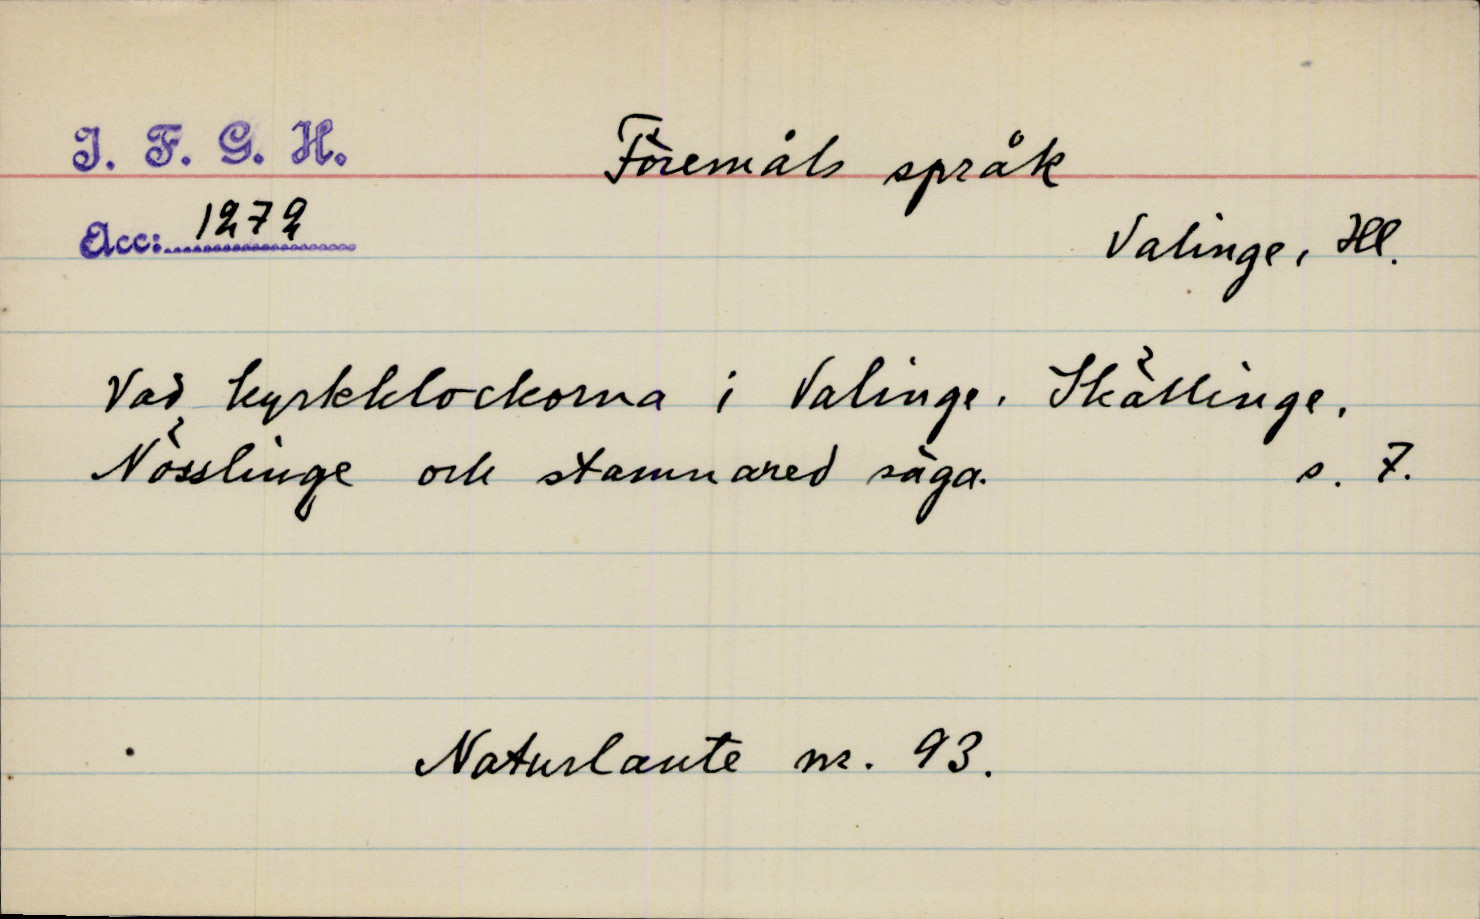 I. F. G. H.
Föremåls språk
Acc: 1272
Valinge, Hl.
Vad kyrkklockorna i Valinge, Skällinge,
Nösslinge och stamnared säga. s. 7.
Naturlaute nr. 93.